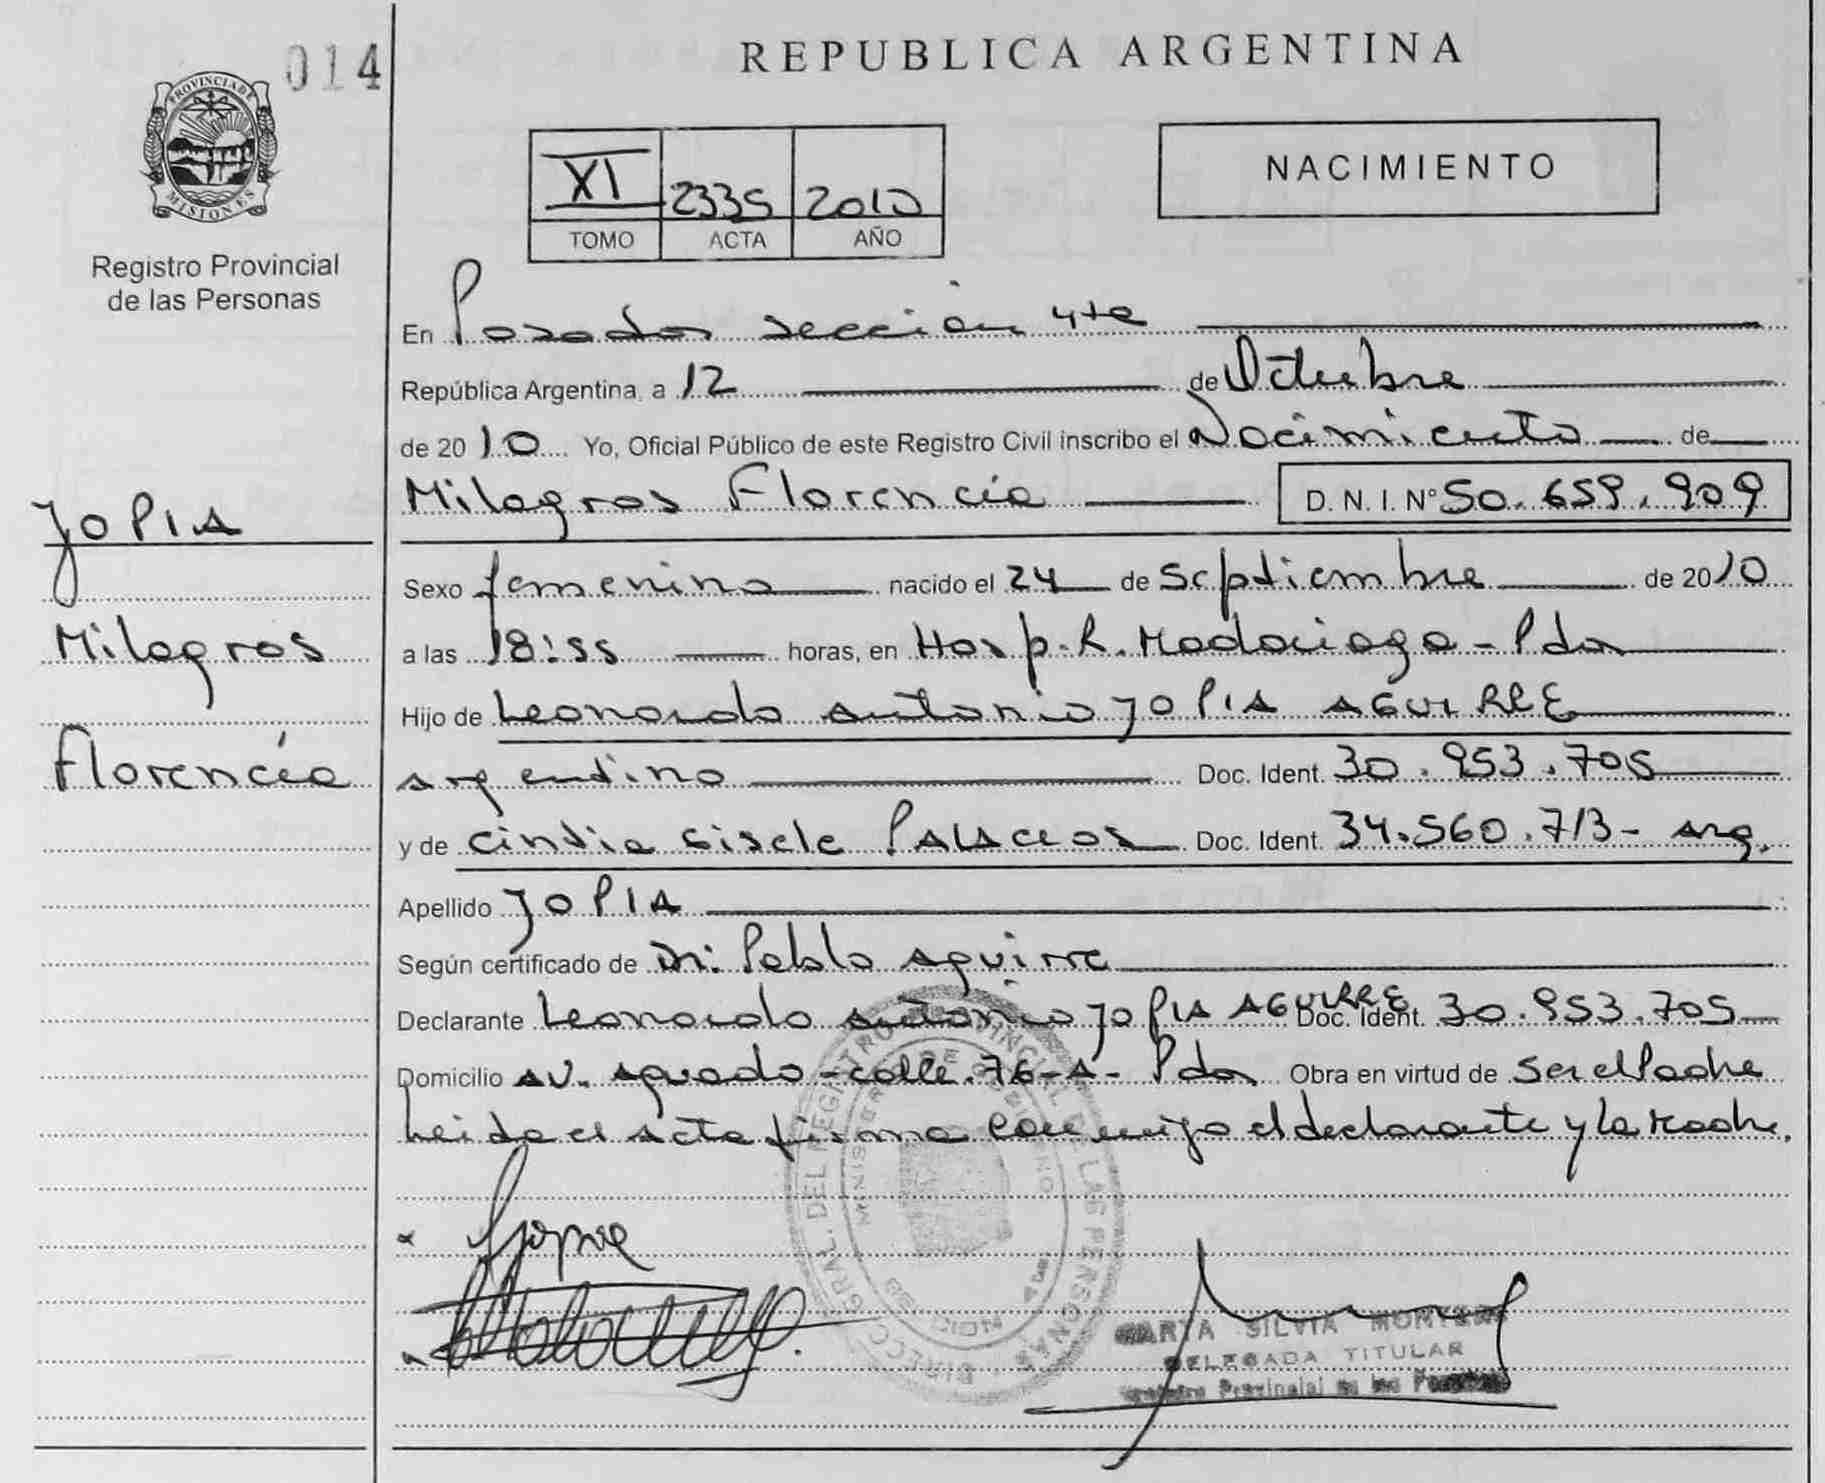 014
PROVINCIA DE
MISIONES
Registro Provincial
de las Personas
JOPIA
Milagros
Florencia
REPUBLICA ARGENTINA
XI 2335 2010
TOMO ACTA AÑO
NACIMIENTO
En Posadas sección 4ta
República Argentina, a 12 de Octubre
de 2010 Yo, Oficial Público de este Registro Civil inscribo el Nacimiento de
Milagros Florencia D. N. I. Nº 50.659.909
Sexo femenino nacido el 24 de Septiembre de 2010
a las 18:55 horas, en Hosp. R. Madariaga - Pdas
Hijo de Leonardo Antonio JOPIA AGUIRRE
argentino Doc. Ident. 30.953.705
y de Cintia Gisele PALACIOS Doc. Ident. 34.560.713 - arg.
Apellido JOPIA
Según certificado de Dr: Pablo Aguirre
Declarante Leonardo Antonio JOPIA AGUIRRE Doc. Ident. 30.953.705
Domicilio Av. Aguado - calle 76-A- Pdas Obra en virtud de Ser el Padre
Leida el acta firma conmigo el declarante y la Madre.
MARTA SILVIA
DELEGADA TITULAR
Registro Provincial de las Personas